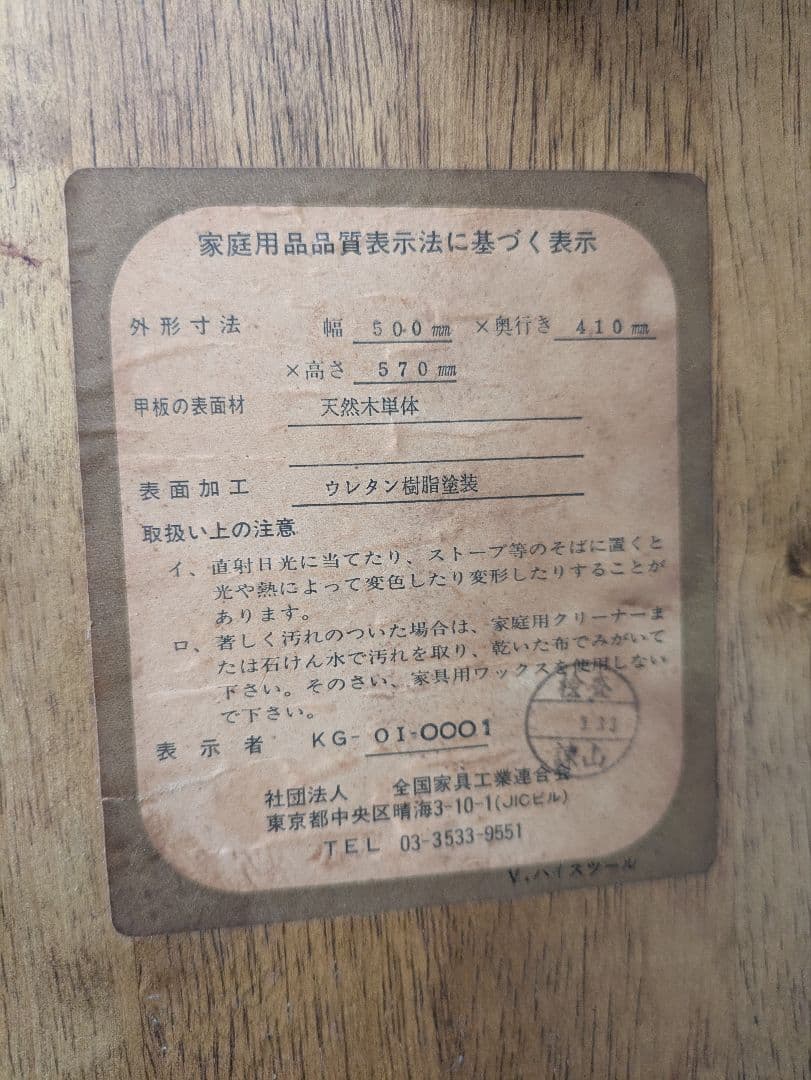 家庭用品品質表示法に基づく表示
外形寸法 幅 500㎜ ×奥行き 410㎜
×高さ 570㎜
甲板の表面材 天然木単体
表面加工 ウレタン樹脂塗装
取扱い上の注意
イ、直射日光に当てたり、ストーブ等のそばに置くと
光や熱によって変色したり変形したりすることが
あります。
ロ、著しく汚れのついた場合は、家庭用クリーナーま
たは石けん水で汚れを取り、乾いた布でみがいて
下さい。そのさい、家具用ワックスを使用しない
で下さい。
検査
山
表示者 KG-01-0001
社団法人 全国家具工業連合会
東京都中央区晴海3-10-1(JICビル)
TEL 03-3533-9551
V,ハイスツール